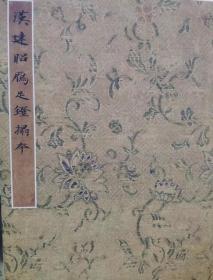 漢建昭鴈足鐙搨本